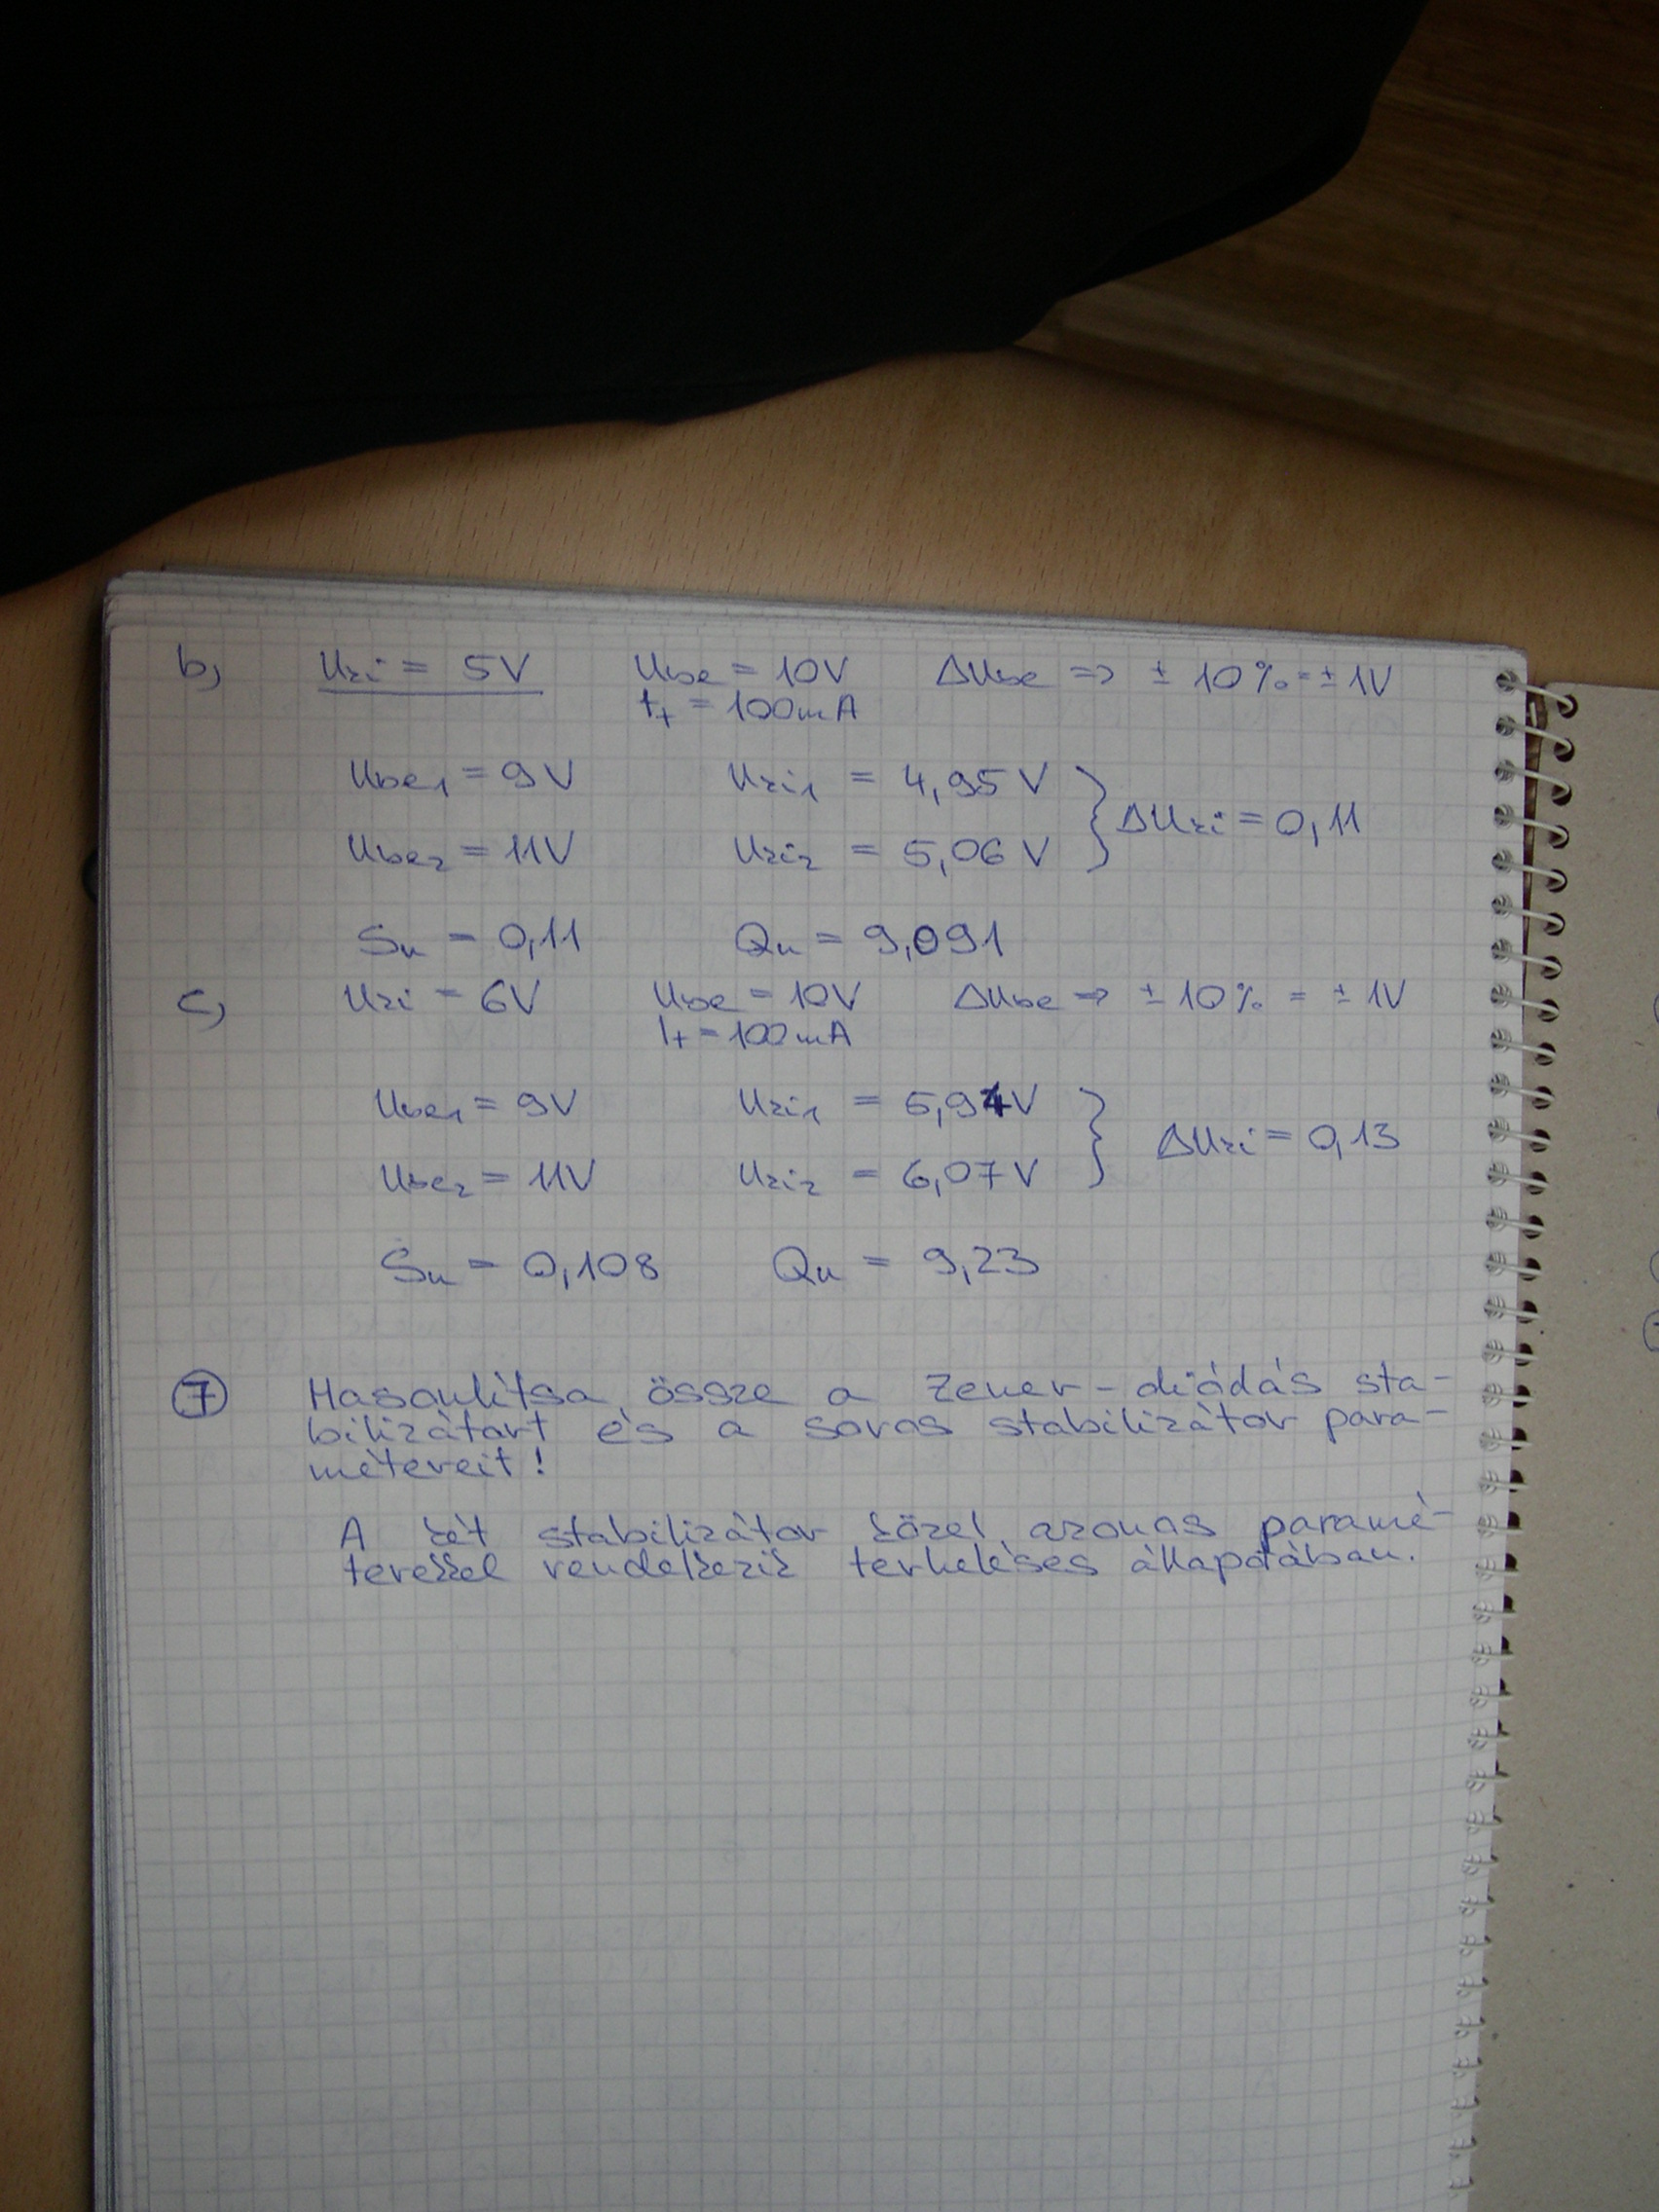 b) Uki = 5V Ube = 10V ΔUbe => ± 10% = ± 1V
It = 100mA
Ube1 = 9V Uki1 = 4,95 V
ΔUki = 0,11
Ube2 = 11V Uki2 = 5,06 V
Su = 0,11 Qu = 9,091
c) Uki = 6V Ube = 10V ΔUbe => ± 10% = ± 1V
It = 100mA
Ube1 = 9V Uki1 = 5,94V
ΔUki = 0,13
Ube2 = 11V Uki2 = 6,07V
Su = 0,108 Qu = 9,23
7 Hasonlítsa össze a Zener-diódás sta-
bilizátort és a soros stabilizátor para-
métereit!
A két stabilizátor közel azonos paramé-
terekkel rendelkezik terheléses állapotában.